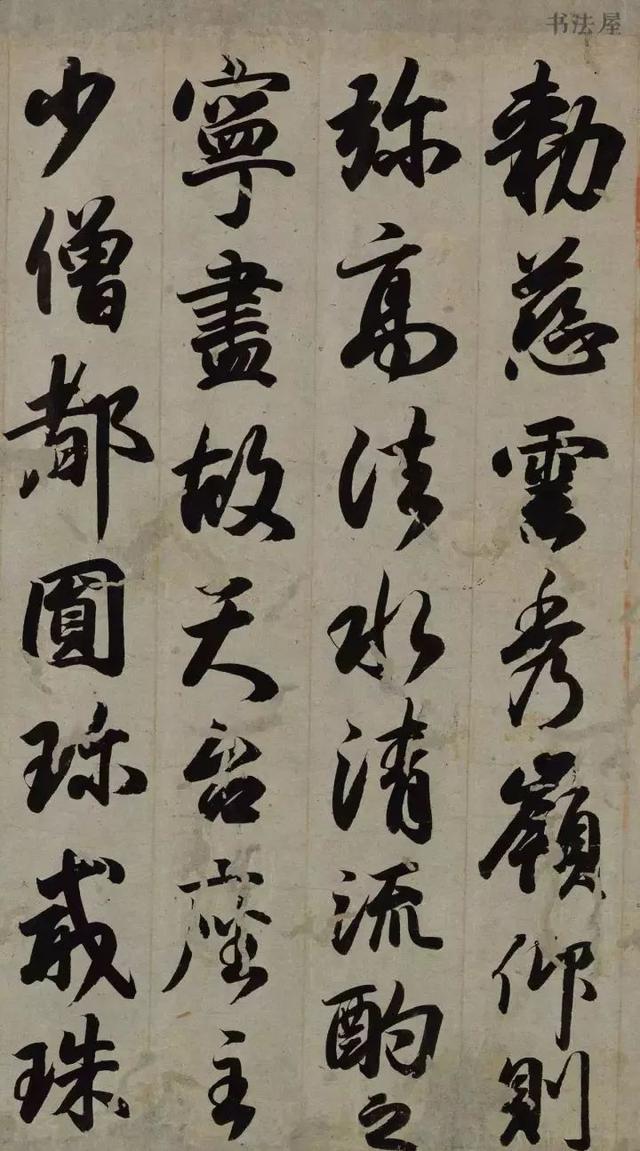 书法屋
勅慈雲秀嶺仰則
弥高法水清流酌之
寧盡故天台座主
少僧都圓珎戒珠